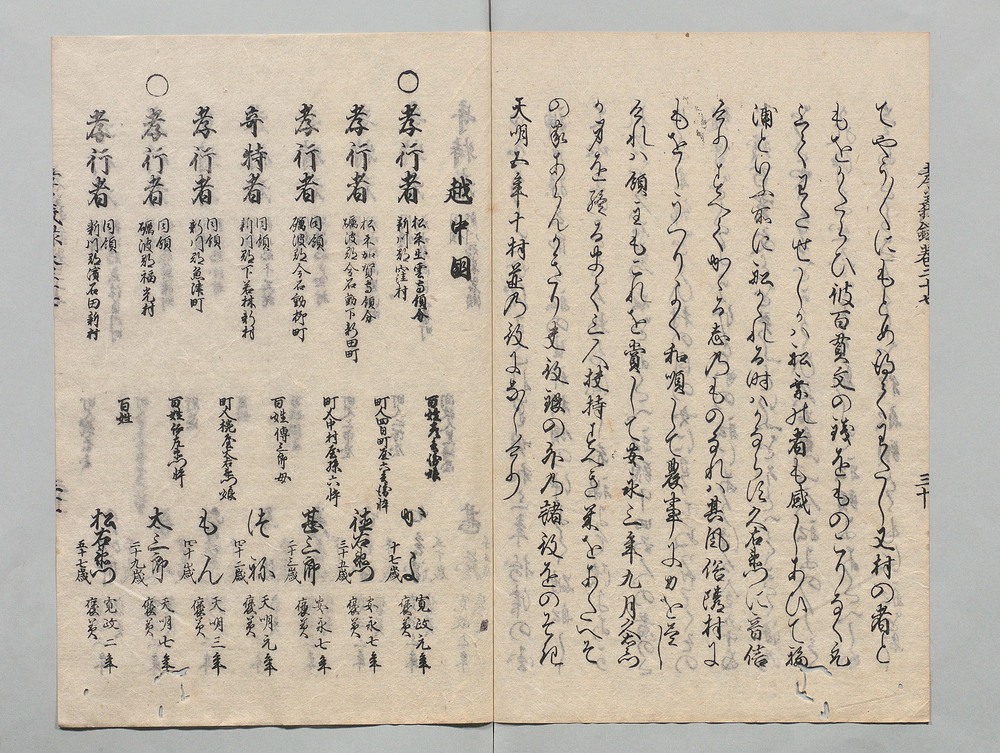 孝義録巻三十七
三十
てやう〳〵にもとめ得てわたし又村の者と
もをかたらひ彼百貫文の銭をものこりなく元
とくわたせしかハ船方の者も感しあひて福
浦といふ所に船かゝれる時ハかならす久右衛門に音信
せりすへてかゝる志のものなれハ其風俗隣村に
もをしうつりよく和順して農事に力を尽し
けれハ領主もこれを賞して安永三年九月久右衛門
か身を終るまて三人扶持すへき米をあたへそ
の家あらんかきり夫役銀の外の諸役をのそき
天明五年十村並の役になしけり
越中国
○孝行者 松平出雲守領分 新川郡窪村 百姓 娘 かよ 十七歳 寛政元年 褒美
孝行者 松平加賀守領分 礪波郡今石動下新田町 町人四日町屋六兵衛忰 徳右衛門 三十五歳 安永七年 褒美
孝行者 同領 礪波郡今石動柳町 町人中村屋孫六忰 甚三郎 二十三歳 安永七年 褒美
奇特者 同領 新川郡下若林新村 百姓傳三郎母 つね 四十二歳 天明元年 褒美
孝行者 同領 新川郡魚津町 町人 娘 もん 四十歳 天明三年 褒美
○孝行者 同領 礪波郡福光村 百姓 忰 太三郎 二十九歳 天明七年 褒美
孝行者 同領 新川郡濱石田新村 百姓 松右衛門 五十七歳 寛政二年 褒美